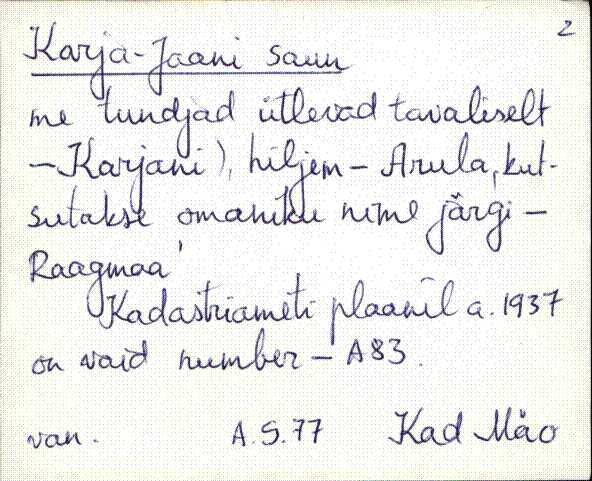 2
Karja-Jaani saun
me tundjad ütlevad tavaliselt
– Karjani), hiljem – Arula, kut-
sutakse omaniku nime järgi –
Raagmaa'
Kadastriameti plaanil a. 1937
on vaid number – A83.
van. A.S.77 Kad Mäo